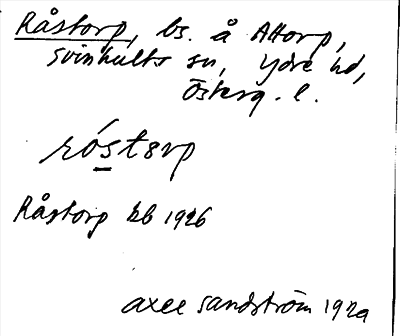 Råstorp, bs. å Attorp,
Svinhults sn, Ydre hd,
Österg. l.
róstorp
Råstorp kb 1926
Axel Sandström 1929